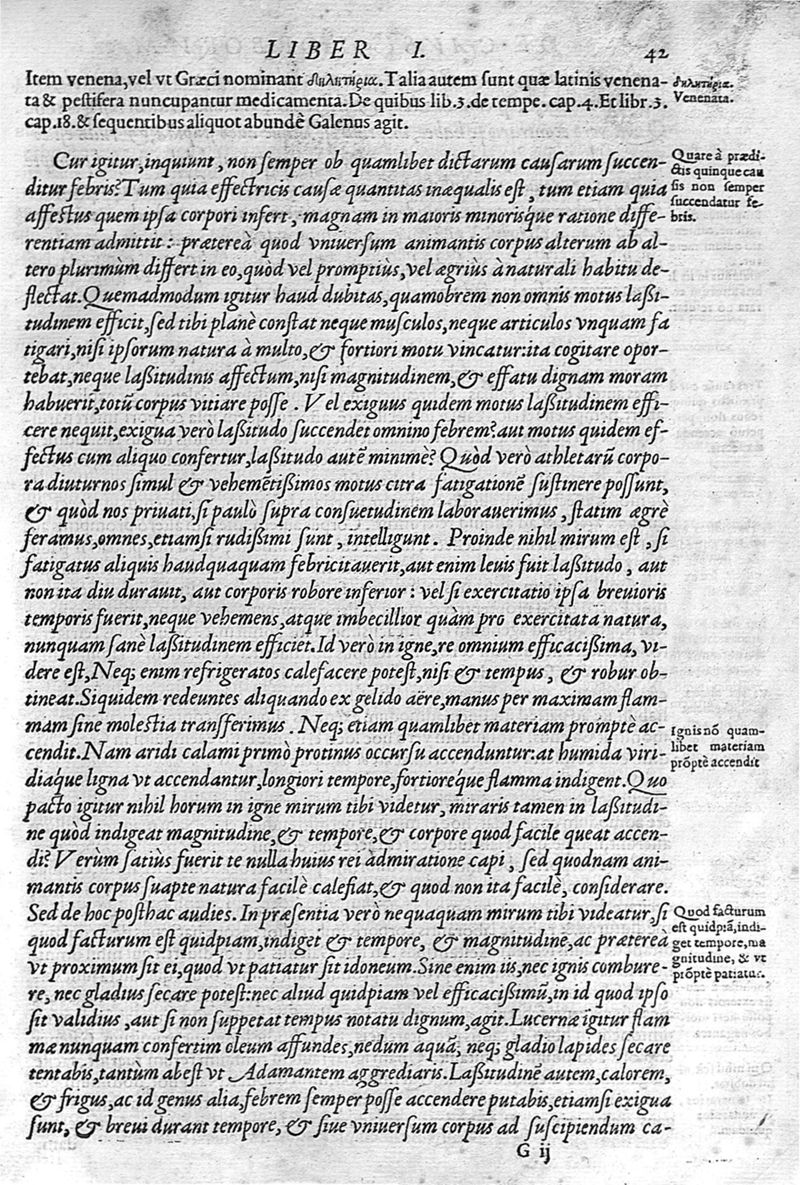 LIBER I. 42
Item venena, vel vt Græci nominant δηλητήρια. Talia autem sunt quæ latinis venena-
ta & pestifera nuncupantur medicamenta. De quibus lib. 3. de tempe. cap. 4. Et libr. 3.
cap. 18. & sequentibus aliquot abundè Galenus agit.
δηλητήρια.
Venenata.
Cur igitur, inquiunt, non semper ob quamlibet dictarum causarum succen-
ditur febris? Tum quia effectricis causæ quantitas inæqualis est, tum etiam quia
affectus quem ipsa corpori infert, magnam in maioris minorisq́ue ratione diffe-
rentiam admittit: prætereà quod vniuersum animantis corpus alterum ab al-
tero plurimùm differt in eo, quòd vel promptiùs, vel ægriùs à naturali habitu de-
flectat. Quemadmodum igitur haud dubitas, quamobrem non omnis motus laßi-
tudinem efficit, sed tibi planè constat neque musculos, neque articulos vnquam fa
tigari, nisi ipsorum natura à multo, & fortiori motu vincatur: ita cogitare opor-
tebat, neque laßitudinis affectum, nisi magnitudinem, & effatu dignam moram
habuerit, totũ corpus vitiare posse. Vel exiguus quidem motus laßitudinem effi-
cere nequit, exigua verò laßitudo succendet omnino febrem? aut motus quidem ef-
fectus cum aliquo confertur, laßitudo autẽ minimè? Quòd verò athletarũ corpo-
ra diuturnos simul & vehemẽtißimos motus citra fatigationẽ sustinere possunt,
& quòd nos priuati, si paulò supra consuetudinem laborauerimus, statim ægrè
feramus, omnes, etiamsi rudißimi sunt, intelligunt. Proinde nihil mirum est, si
fatigatus aliquis haudquaquam febricitauerit, aut enim leuis fuit laßitudo, aut
non ita diu durauit, aut corporis robore inferior: vel si exercitatio ipsa breuioris
temporis fuerit, neque vehemens, atque imbecillior quàm pro exercitata natura,
nunquam sanè laßitudinem efficiet. Id verò in igne, re omnium efficacißima, vi-
dere est, Neq; enim refrigeratos calefacere potest, nisi & tempus, & robur ob-
tineat. Siquidem redeuntes aliquando ex gelido aëre, manus per maximam flam-
mam sine molestia transferimus. Neq; etiam quamlibet materiam promptè ac-
cendit. Nam aridi calami primò protinus occursu accenduntur: at humida viri-
diaq́ue ligna vt accendantur, longiori tempore, fortioreq́ue flamma indigent. Quo
pacto igitur nihil horum in igne mirum tibi videtur, miraris tamen in laßitudi-
ne quòd indigeat magnitudine, & tempore, & corpore quod facile queat accen-
di? Verùm satiùs fuerit te nulla huius rei admiratione capi, sed quodnam ani-
mantis corpus suapte natura facilè calefiat, & quod non ita facilè, considerare.
Sed de hoc posthac audies. In præsentia verò nequaquam mirum tibi videatur, si
quod facturum est quidpiam, indiget & tempore, & magnitudine, ac prætereà
vt proximum sit ei, quod vt patiatur sit idoneum. Sine enim iis, nec ignis combure-
re, nec gladius secare potest: nec aliud quidpiam vel efficacißimũ, in id quod ipso
sit validius, aut si non suppetat tempus notatu dignum, agit. Lucernæ igitur flam
mæ nunquam confertim oleum affundes, nedum aquã, neq; gladio lapides secare
tentabis, tantùm abest vt Adamantem aggrediaris. Laßitudinẽ autem, calorem,
& frigus, ac id genus alia, febrem semper posse accendere putabis, etiamsi exigua
sunt, & breui durant tempore, & siue vniuersum corpus ad suscipiendum ca-
Quare à prædi-
ctis quinque cau
sis non semper
succendatur fe-
bris.
Ignis nõ quam-
libet materiam
prõptè accendit
Quod facturum
est quidpiã, indi-
get tempore, ma
gnitudine, & vt
prõptè patiatur.
G ij